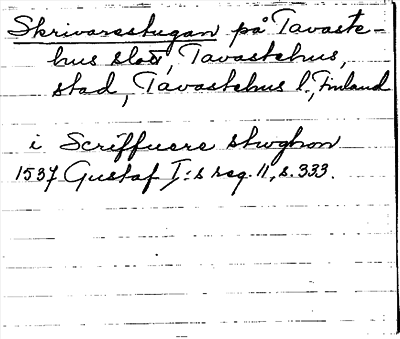 Skrivarestugan på Tavaste-
hus slott, Tavastehus,
stad, Tavastehus l., Finland
i Scriffuere stwghon
1537 Gustaf I:s reg. 11, s. 333.